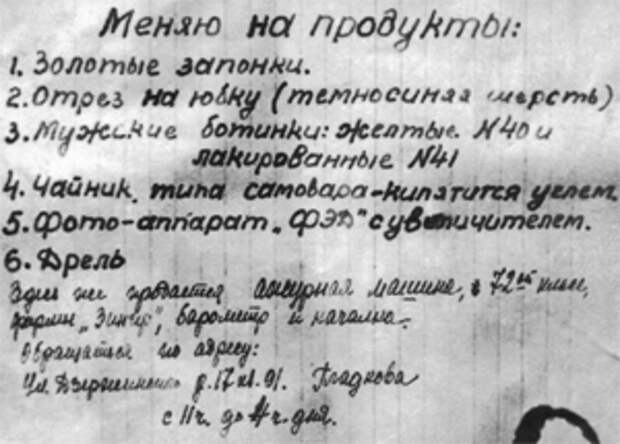 Меняю на продукты:
1. Золотые запонки.
2. Отрез на юбку (темносиняя шерсть)
3. Мужские ботинки: желтые N40 и
лакированные N41
4. Чайник типа самовара-кипятится углем.
5. Фото-аппарат „ФЭД" с увеличителем.
6. Дрель
Здесь же продается ажурная машина, 72
фирмы „Зингер", барометр и качалка.
Обращаться по адресу:
Ул. Дзержинского д. 17 кв. 91. Гладкова
с 11 ч. до 4 ч. дня.